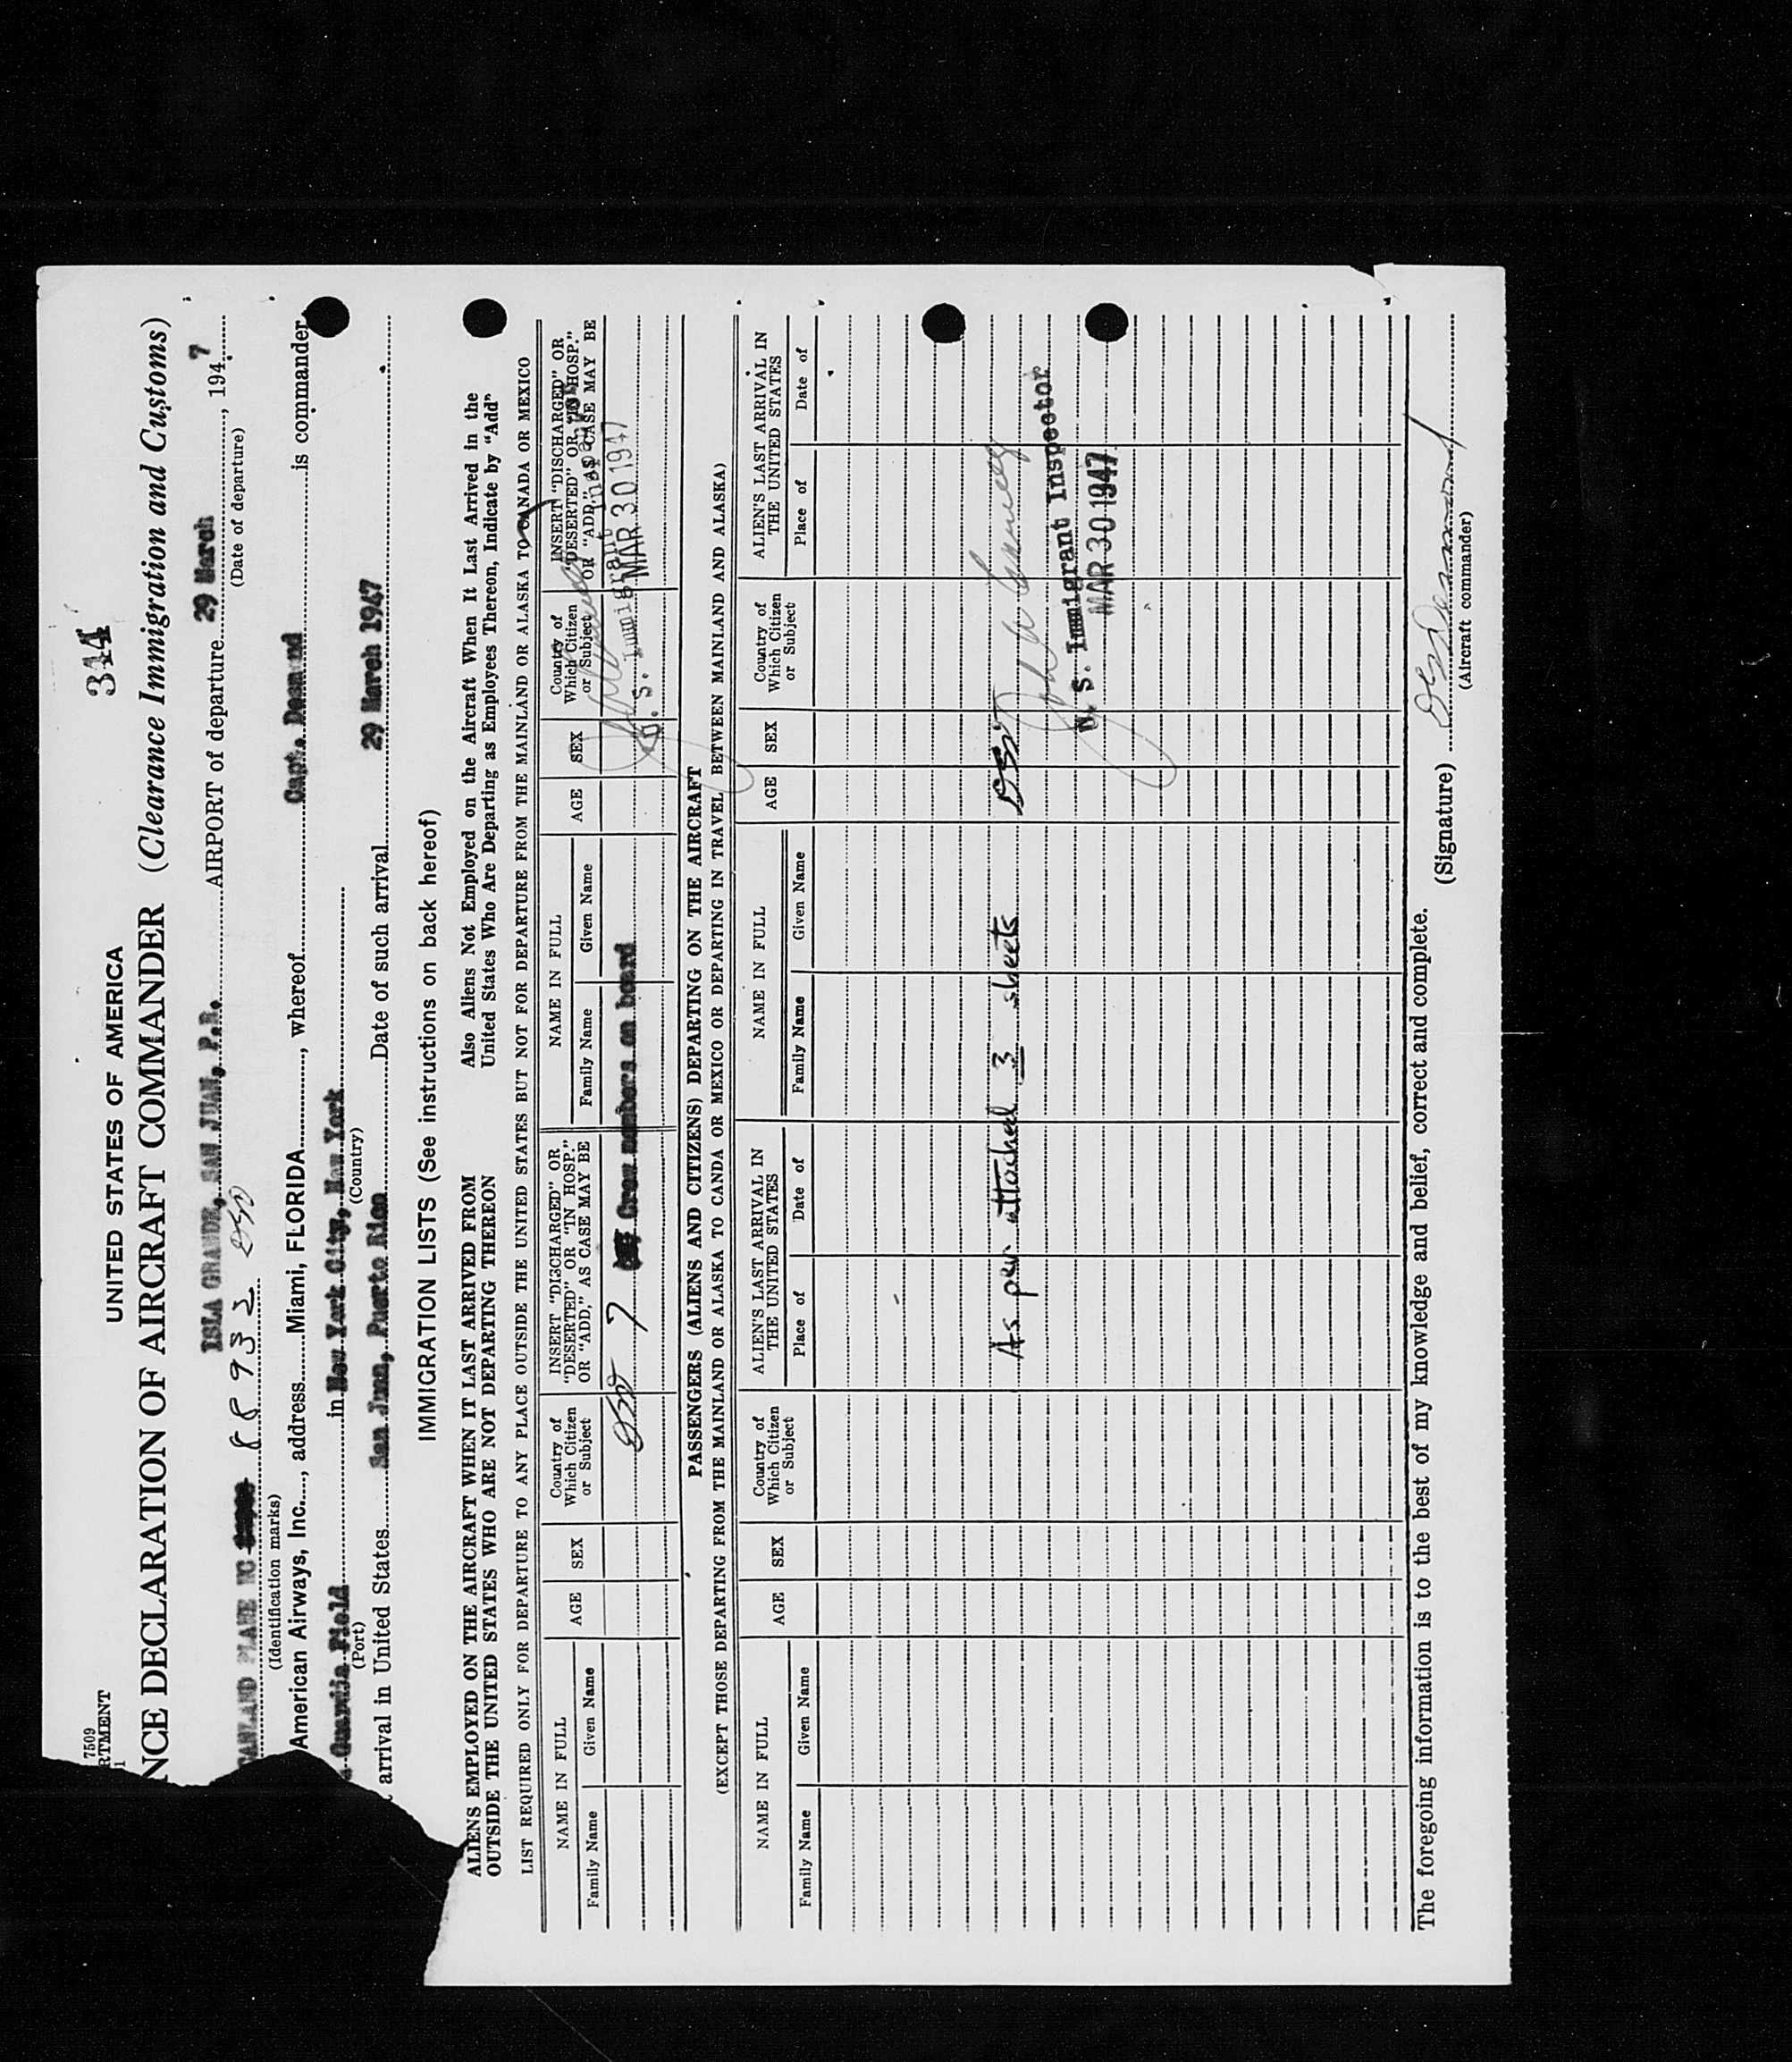 344
7509
RTMENT
UNITED STATES OF AMERICA
NCE DECLARATION OF AIRCRAFT COMMANDER (Clearance Immigration and Customs)
ISLA GRANDE, SAN JUAN, P.R. AIRPORT of departure 29 March, 1947
(Date of departure)
PLANE NC 88932
(Identification marks)
American Airways, Inc., address Miami, FLORIDA, whereof Capt. Desmond is commander,
Guardia Field in New York City, New York
(Port) (Country)
arrival in United States San Juan, Puerto Rico Date of such arrival 29 March 1947
IMMIGRATION LISTS (See instructions on back hereof)
ALIENS EMPLOYED ON THE AIRCRAFT WHEN IT LAST ARRIVED FROM
OUTSIDE THE UNITED STATES WHO ARE NOT DEPARTING THEREON
Also Aliens Not Employed on the Aircraft When It Last Arrived in the
United States Who Are Departing as Employees Thereon, Indicate by "Add"
LIST REQUIRED ONLY FOR DEPARTURE TO ANY PLACE OUTSIDE THE UNITED STATES BUT NOT FOR DEPARTURE FROM THE MAINLAND OR ALASKA TO CANADA OR MEXICO
NAME IN FULL
Family Name Given Name
AGE
SEX
Country of
Which Citizen
or Subject
INSERT "DISCHARGED" OR
"DESERTED" OR "IN HOSP."
OR "ADD," AS CASE MAY BE
NAME IN FULL
Family Name Given Name
AGE
SEX
Country of
Which Citizen
or Subject
INSERT "DISCHARGED" OR
"DESERTED" OR "IN HOSP."
OR "ADD," AS CASE MAY BE
7 Crew members on board
U. S. Immigrant Inspector
MAR 30 1947
PASSENGERS (ALIENS AND CITIZENS) DEPARTING ON THE AIRCRAFT
(EXCEPT THOSE DEPARTING FROM THE MAINLAND OR ALASKA TO CANDA OR MEXICO OR DEPARTING IN TRAVEL BETWEEN MAINLAND AND ALASKA)
NAME IN FULL
Family Name Given Name
AGE
SEX
Country of
Which Citizen
or Subject
ALIEN'S LAST ARRIVAL IN
THE UNITED STATES
Place of Date of
NAME IN FULL
Family Name Given Name
AGE
SEX
Country of
Which Citizen
or Subject
ALIEN'S LAST ARRIVAL IN
THE UNITED STATES
Place of Date of
As per attached 3 sheets
U. S. Immigrant Inspector
MAR 30 1947
The foregoing information is to the best of my knowledge and belief, correct and complete.
(Signature)
(Aircraft commander)